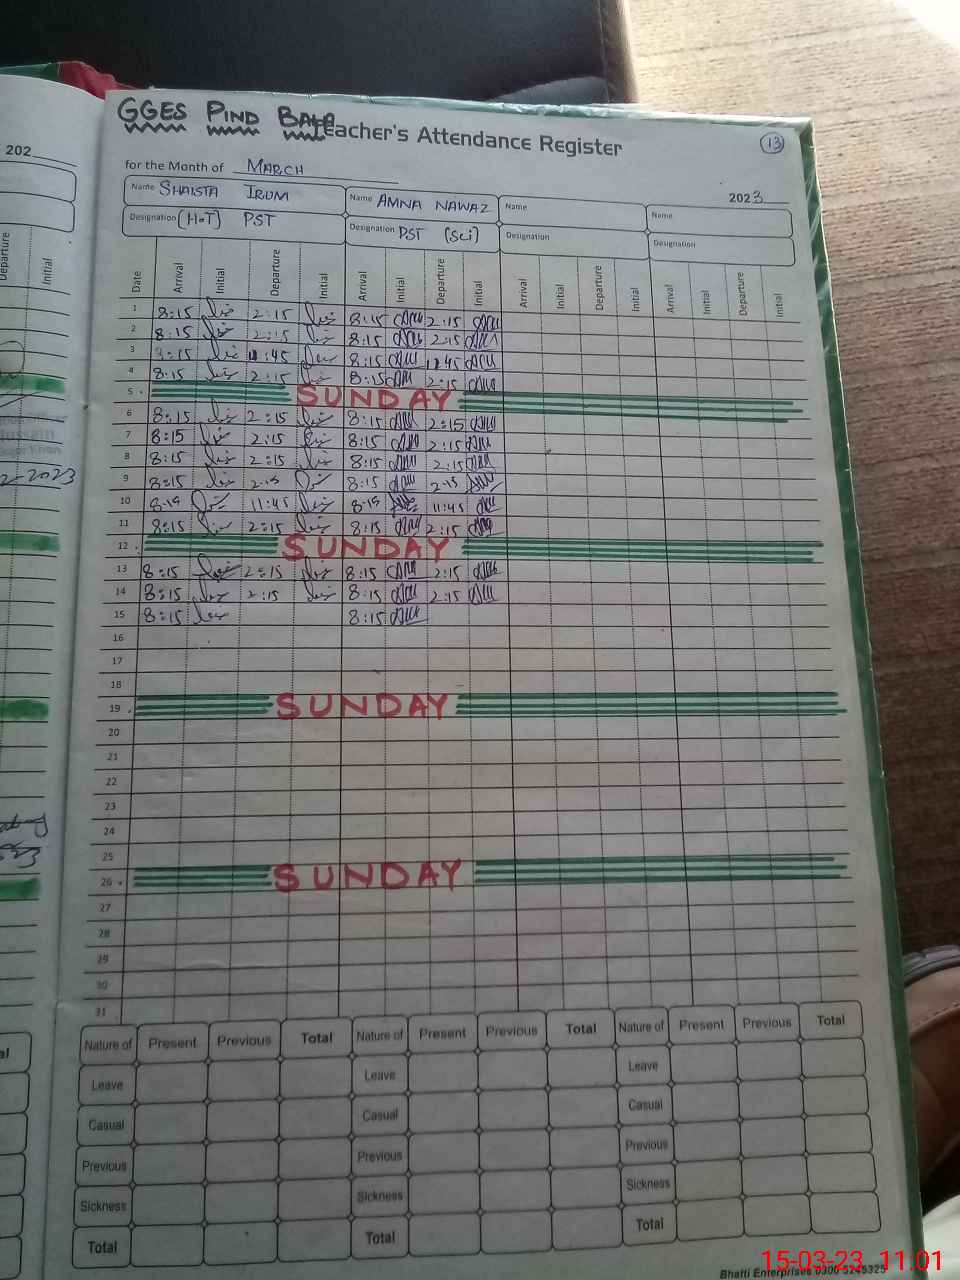 GGES PIND BALA
Teacher's Attendance Register
13
202
for the Month of MARCH
2023
Name SHAISTA IRUM Name AMNA NAWAZ Name Name
Designation (H.T) PST Designation PST (Sci) Designation Designation
Departure Initial
Date Arrival Initial Departure Initial Arrival Initial Departure Initial Arrival Initial Departure Initial Arrival Initial Departure Initial
1 8:15 2:15 8:15 2:15
2 8:15 2:15 8:15 2:15
3 8:15 11:45 8:15 11:45
4 8:15 2:15 8:15 2:15
5 SUNDAY
6 8:15 2:15 8:15 2:15
7 8:15 2:15 8:15 2:15
8 8:15 2:15 8:15 2:15
9 8:15 2:15 8:15 2:15
10 8:15 11:45 8:15 11:45
11 8:15 2:15 8:15 2:15
12 SUNDAY
13 8:15 2:15 8:15 2:15
14 8:15 2:15 8:15 2:15
15 8:15 8:15
16
17
18
19 SUNDAY
20
21
22
23
24
25
26 SUNDAY
27
28
29
30
31
Nature of Present Previous Total Nature of Present Previous Total Nature of Present Previous Total
Leave Leave Leave
Casual Casual Casual
Previous Previous Previous
Sickness Sickness Sickness
Total Total Total
Bhatti Enterprises 0300-5245325
15-03-23 11:01